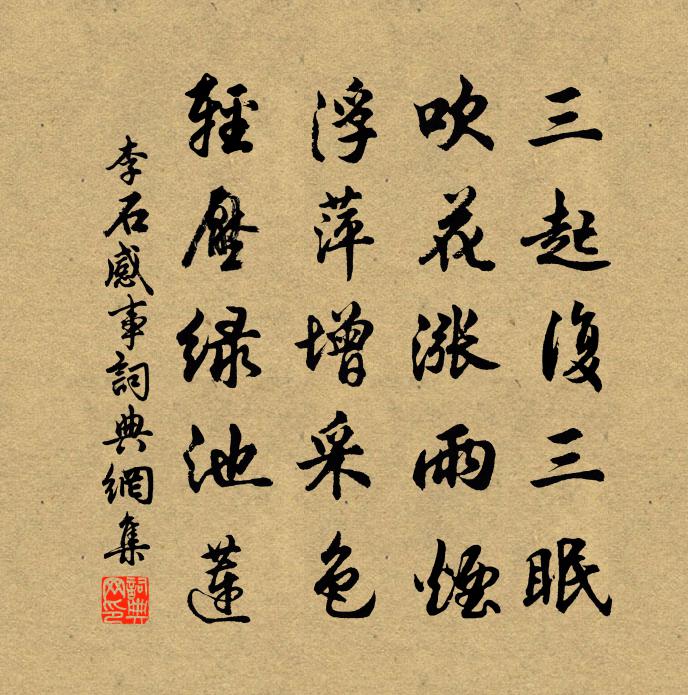 三起復三眠
吹花漲雨煙
浮萍增采色
輕壓绿池蓮
李石感事詞典網集
詞典網印